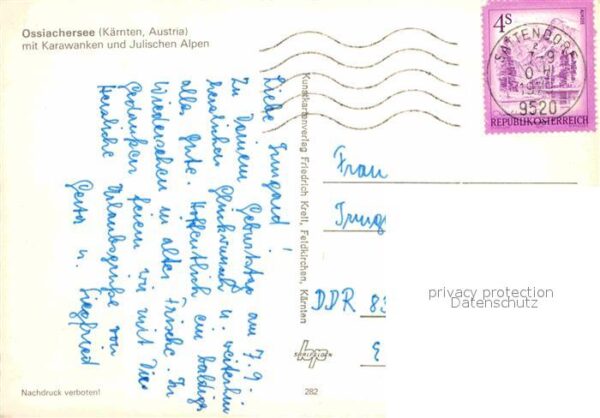 Ossiachersee (Kärnten, Austria)
mit Karawanken und Julischen Alpen
Liebe Irmgard!
Zu Deinem Geburtstag am 7.9.
herzlichen Glückwunsch u. weiterhin
alles Gute. Hoffentlich ein baldiges
Wiedersehen in alter Frische. In
Gedanken feiern wir mit Dir.
Herzliche Urlaubsgrüße von
Gerta u. Siegfried
Kunstkartenverlag Friedrich Kreil, Feldkirchen, Kärnten
4S
REPUBLIK ÖSTERREICH
SATTENDORF
9520
Frau
Irmg
DDR 83
privacy protection
Datenschutz
Nachdruck verboten!
282